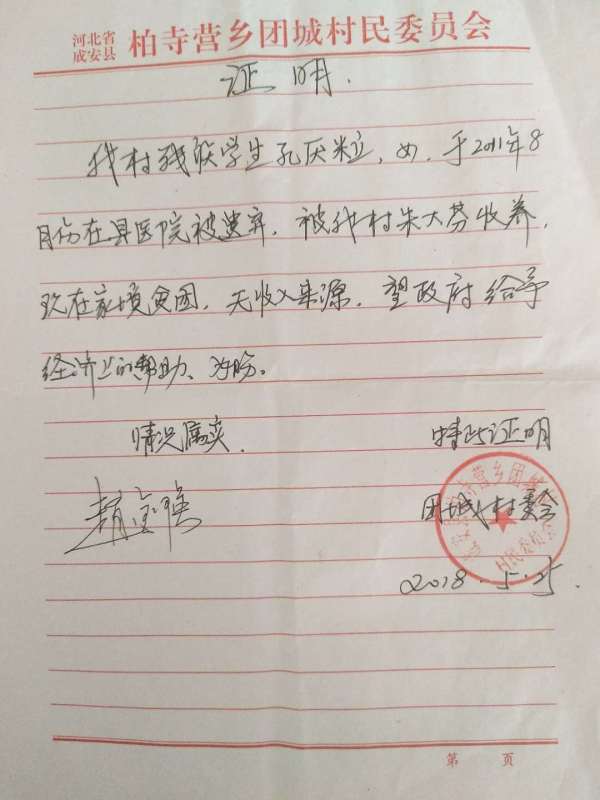 河北省
成安县
柏寺营乡团城村民委员会
证明.
我村残疾学生孔厌粒，女，于2011年8
月份在县医院被遗弃.被我村朱大芬收养.
现在家境贫困，无收入来源，望政府给予
经济上的帮助、为盼。
情况属实. 特此证明
团城村委会
村民委员会
2018.5.25.
第 页